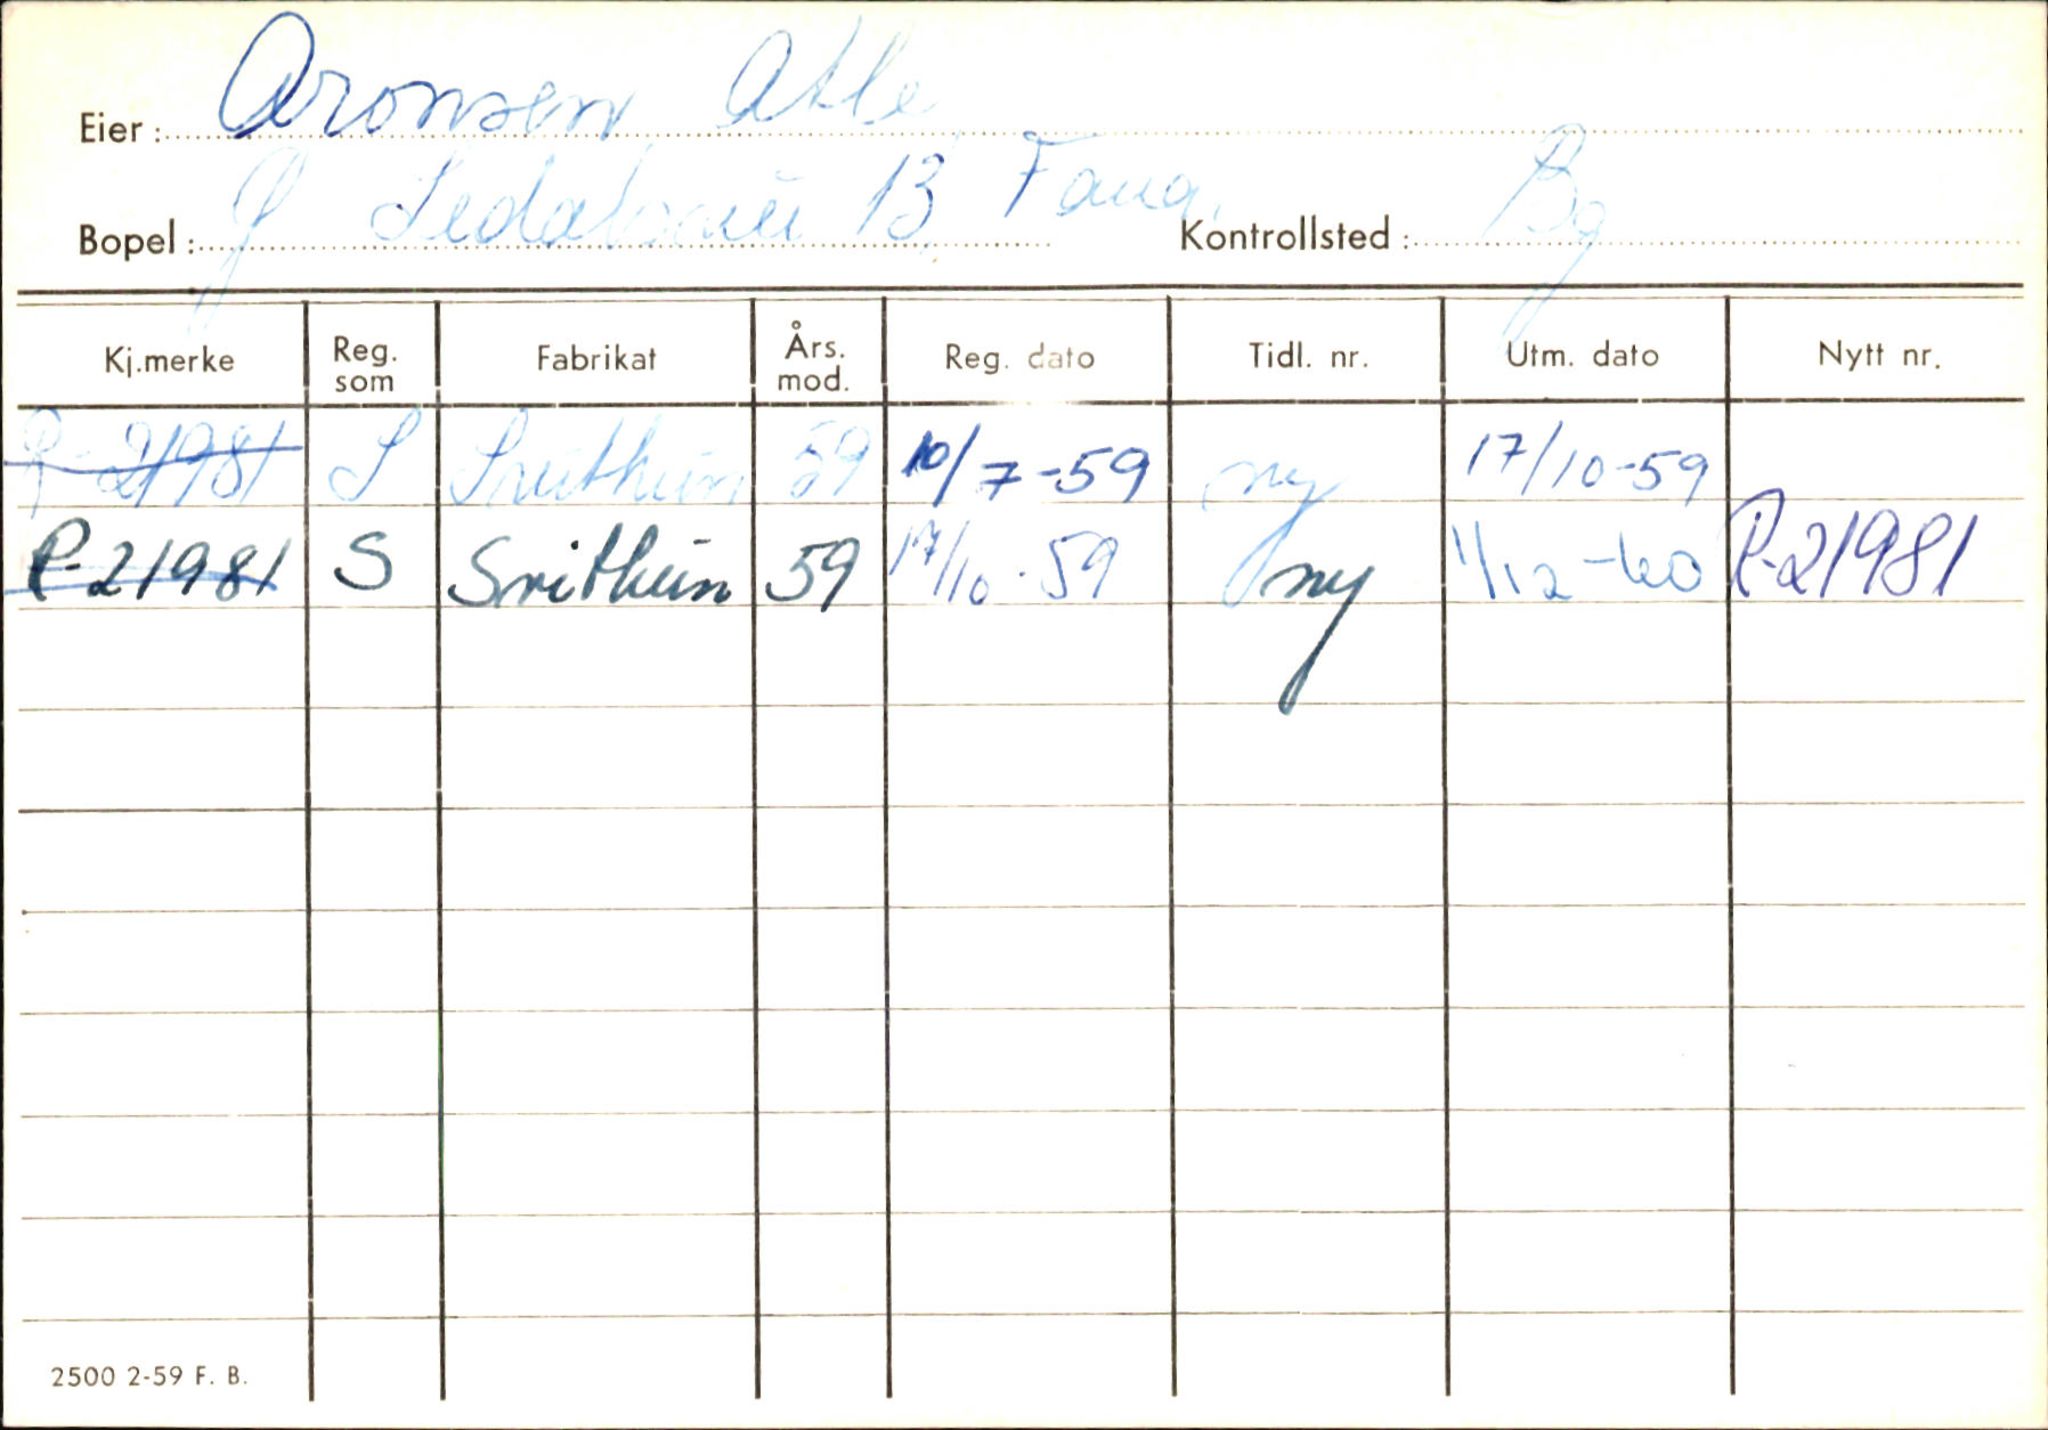 Eier: Aronsen Atle
Bopel: 13 Fana. Kontrollsted: Bg
Kj.merke Reg. som Fabrikat Års. mod. Reg. dato Tidl. nr. Utm. dato Nytt nr.
R-21981 S Svithun 59 10/7-59 ny 17/10-59
R-21981 S Svithun 59 17/10-59 ny 1/12-60 R-21981
2500 2-59 F. B.